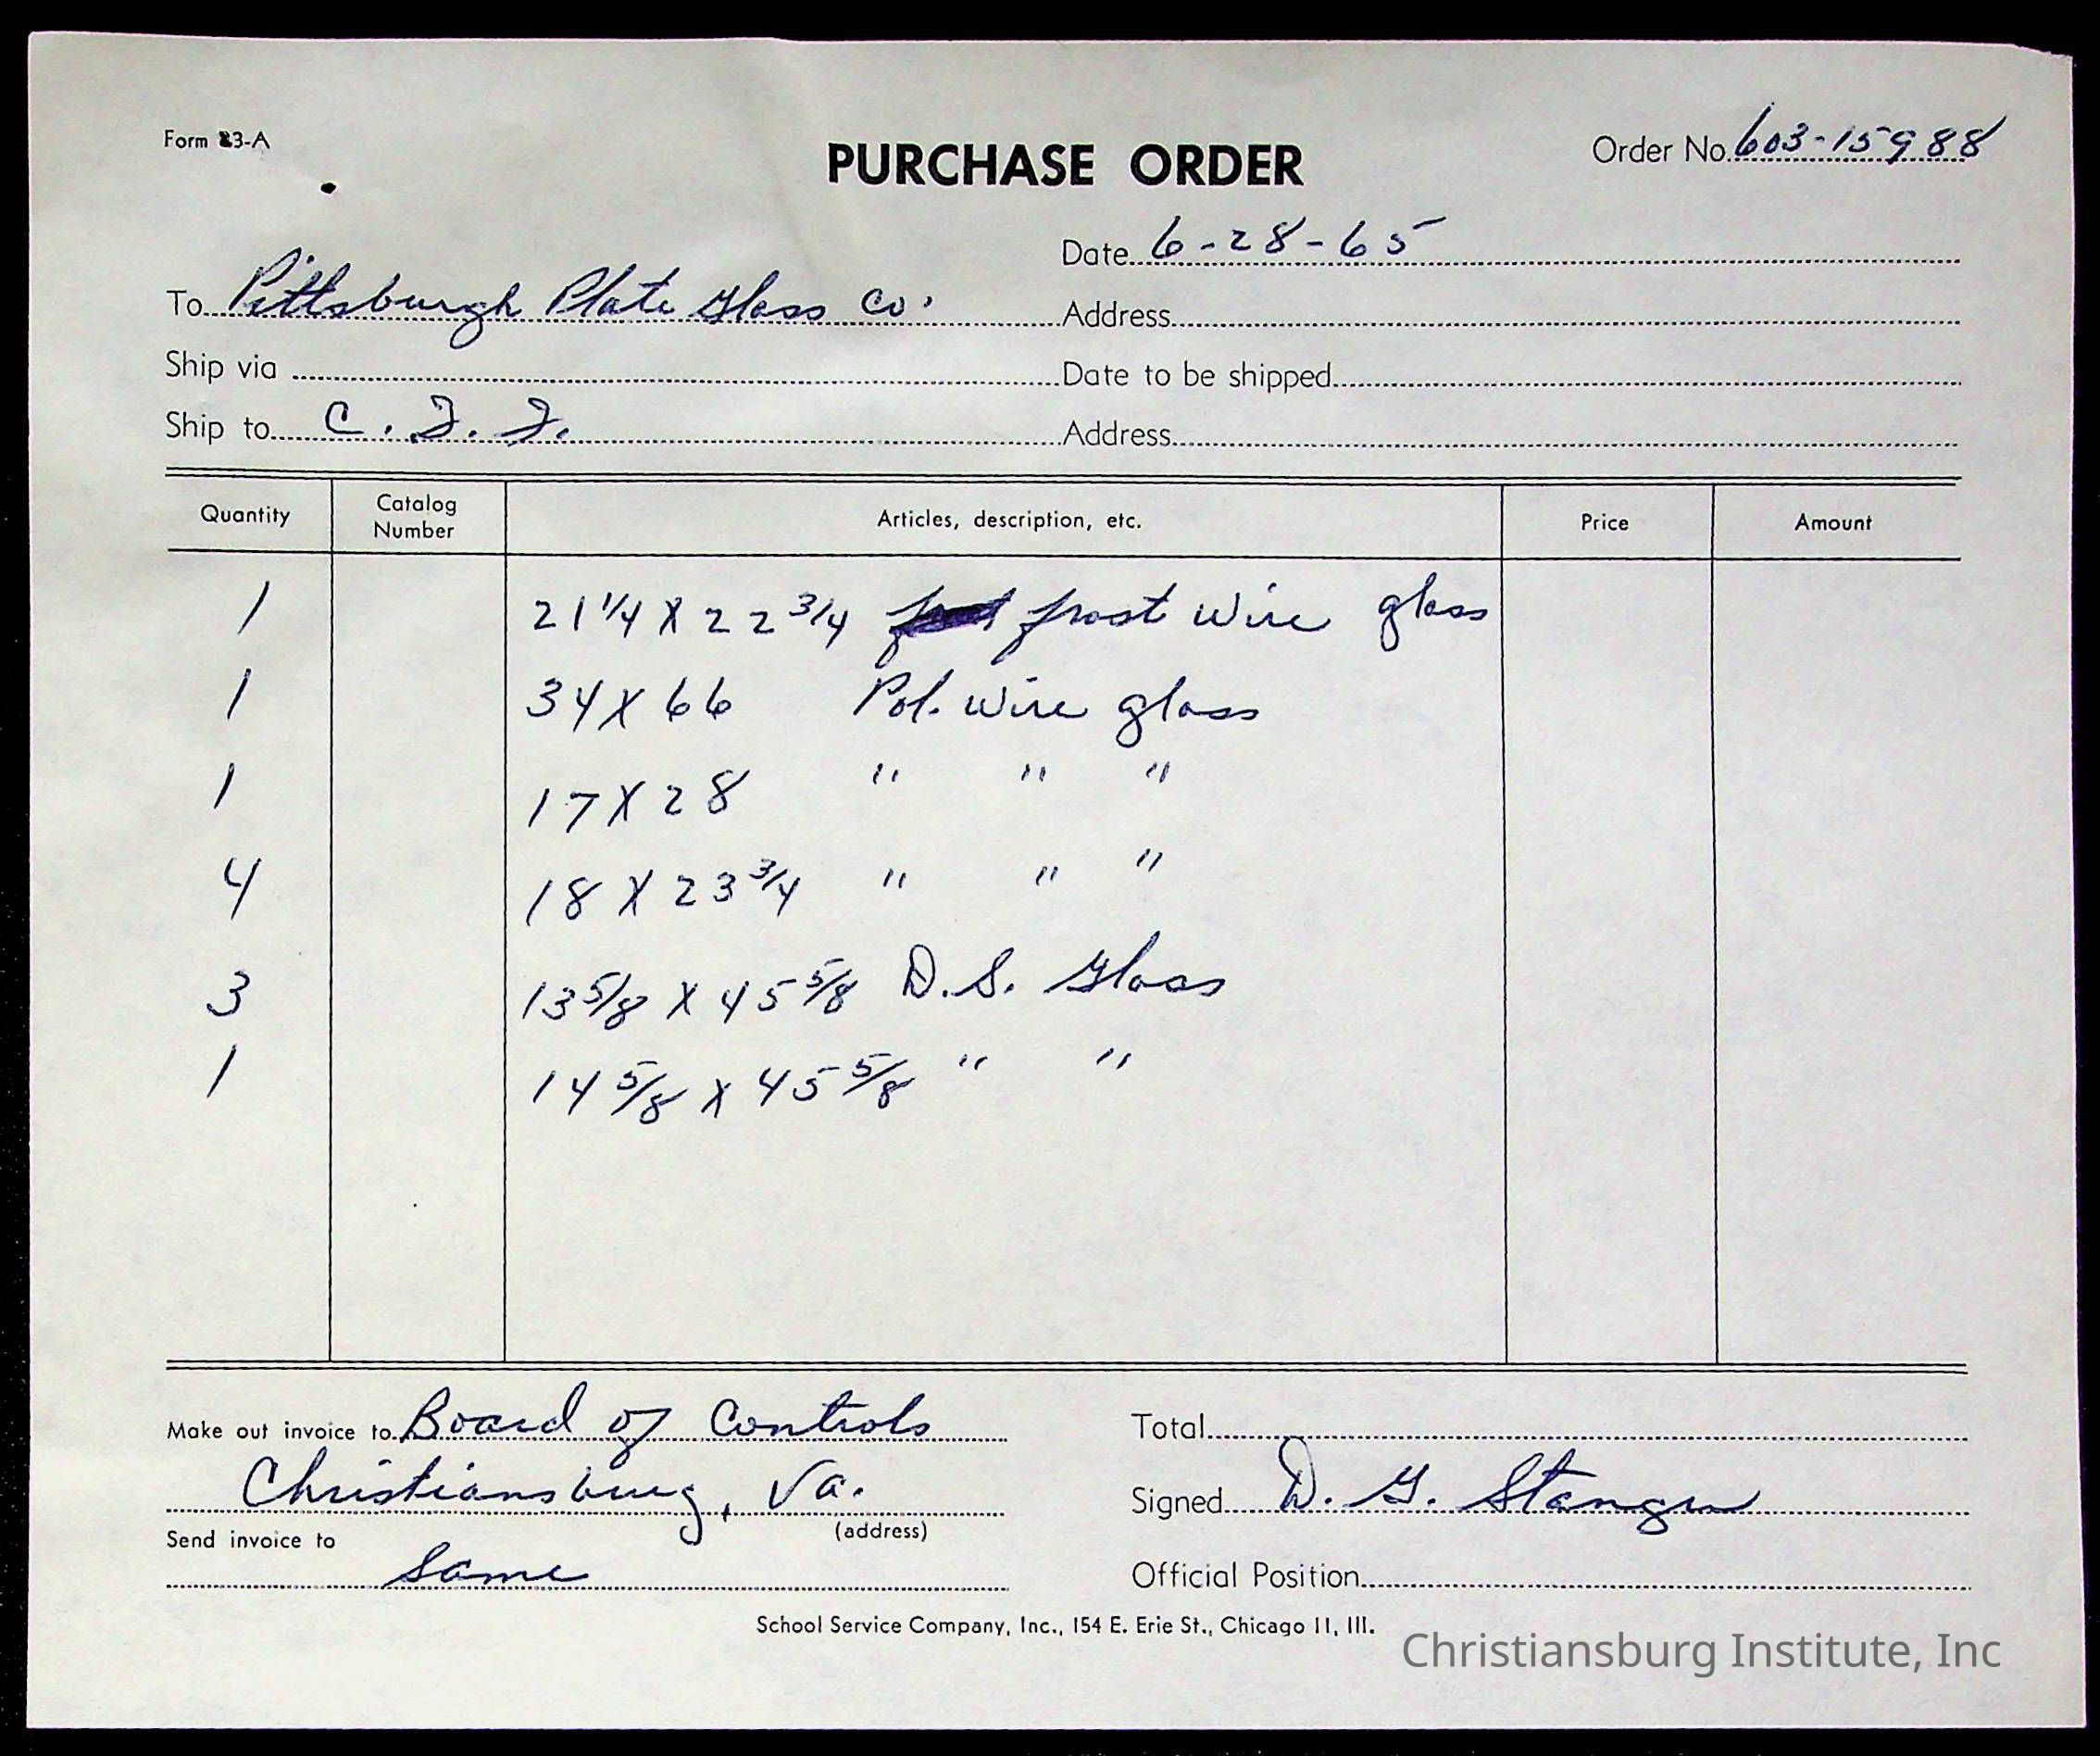 Form 23-A
PURCHASE ORDER
Order No. 603-15988
Date 6-28-65
To Pittsburgh Plate Glass Co.
Address
Ship via
Date to be shipped
Ship to C. I. I.
Address
Quantity Catalog Number Articles, description, etc. Price Amount
1 21 1/4 X 22 3/4 frost wire glass
1 34 X 66 Pol. wire glass
1 17 X 28 " " "
4 18 X 23 3/4 " " "
3 13 5/8 X 45 5/8 D.S. Glass
1 14 5/8 X 45 5/8 " "
Make out invoice to Board of Controls
Total
Christiansburg, Va.
(address)
Signed D. G. Stanger
Send invoice to
same
Official Position
School Service Company, Inc., 154 E. Erie St., Chicago 11, Ill.
Christiansburg Institute, Inc